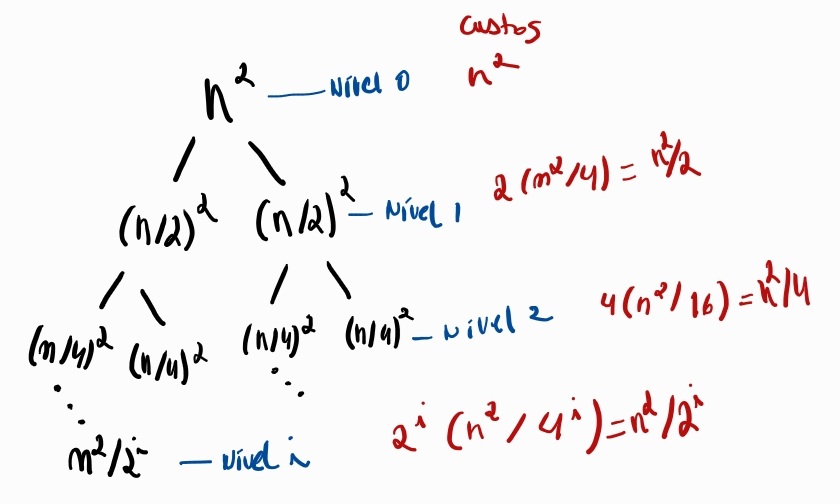 Custos
n² — Nível 0 n²
(n/2)² (n/2)² — Nível 1 2(n²/4) = n²/2
(n/4)² (n/4)² (n/4)² (n/4)² — Nível 2 4(n²/16) = n²/4
n²/2ⁱ — Nível i 2ⁱ(n²/4ⁱ) = n²/2ⁱ